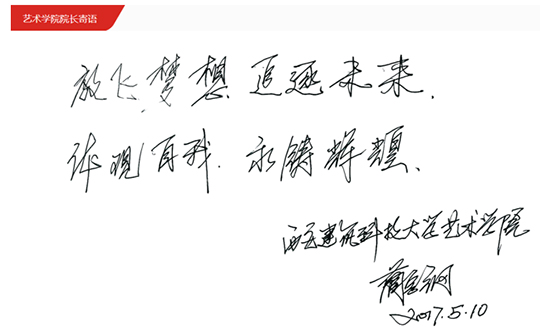 艺术学院院长寄语
放飞梦想 追逐未来.
体现自我.永铸辉煌.
西安建筑科技大学艺术学院
2017.5.10